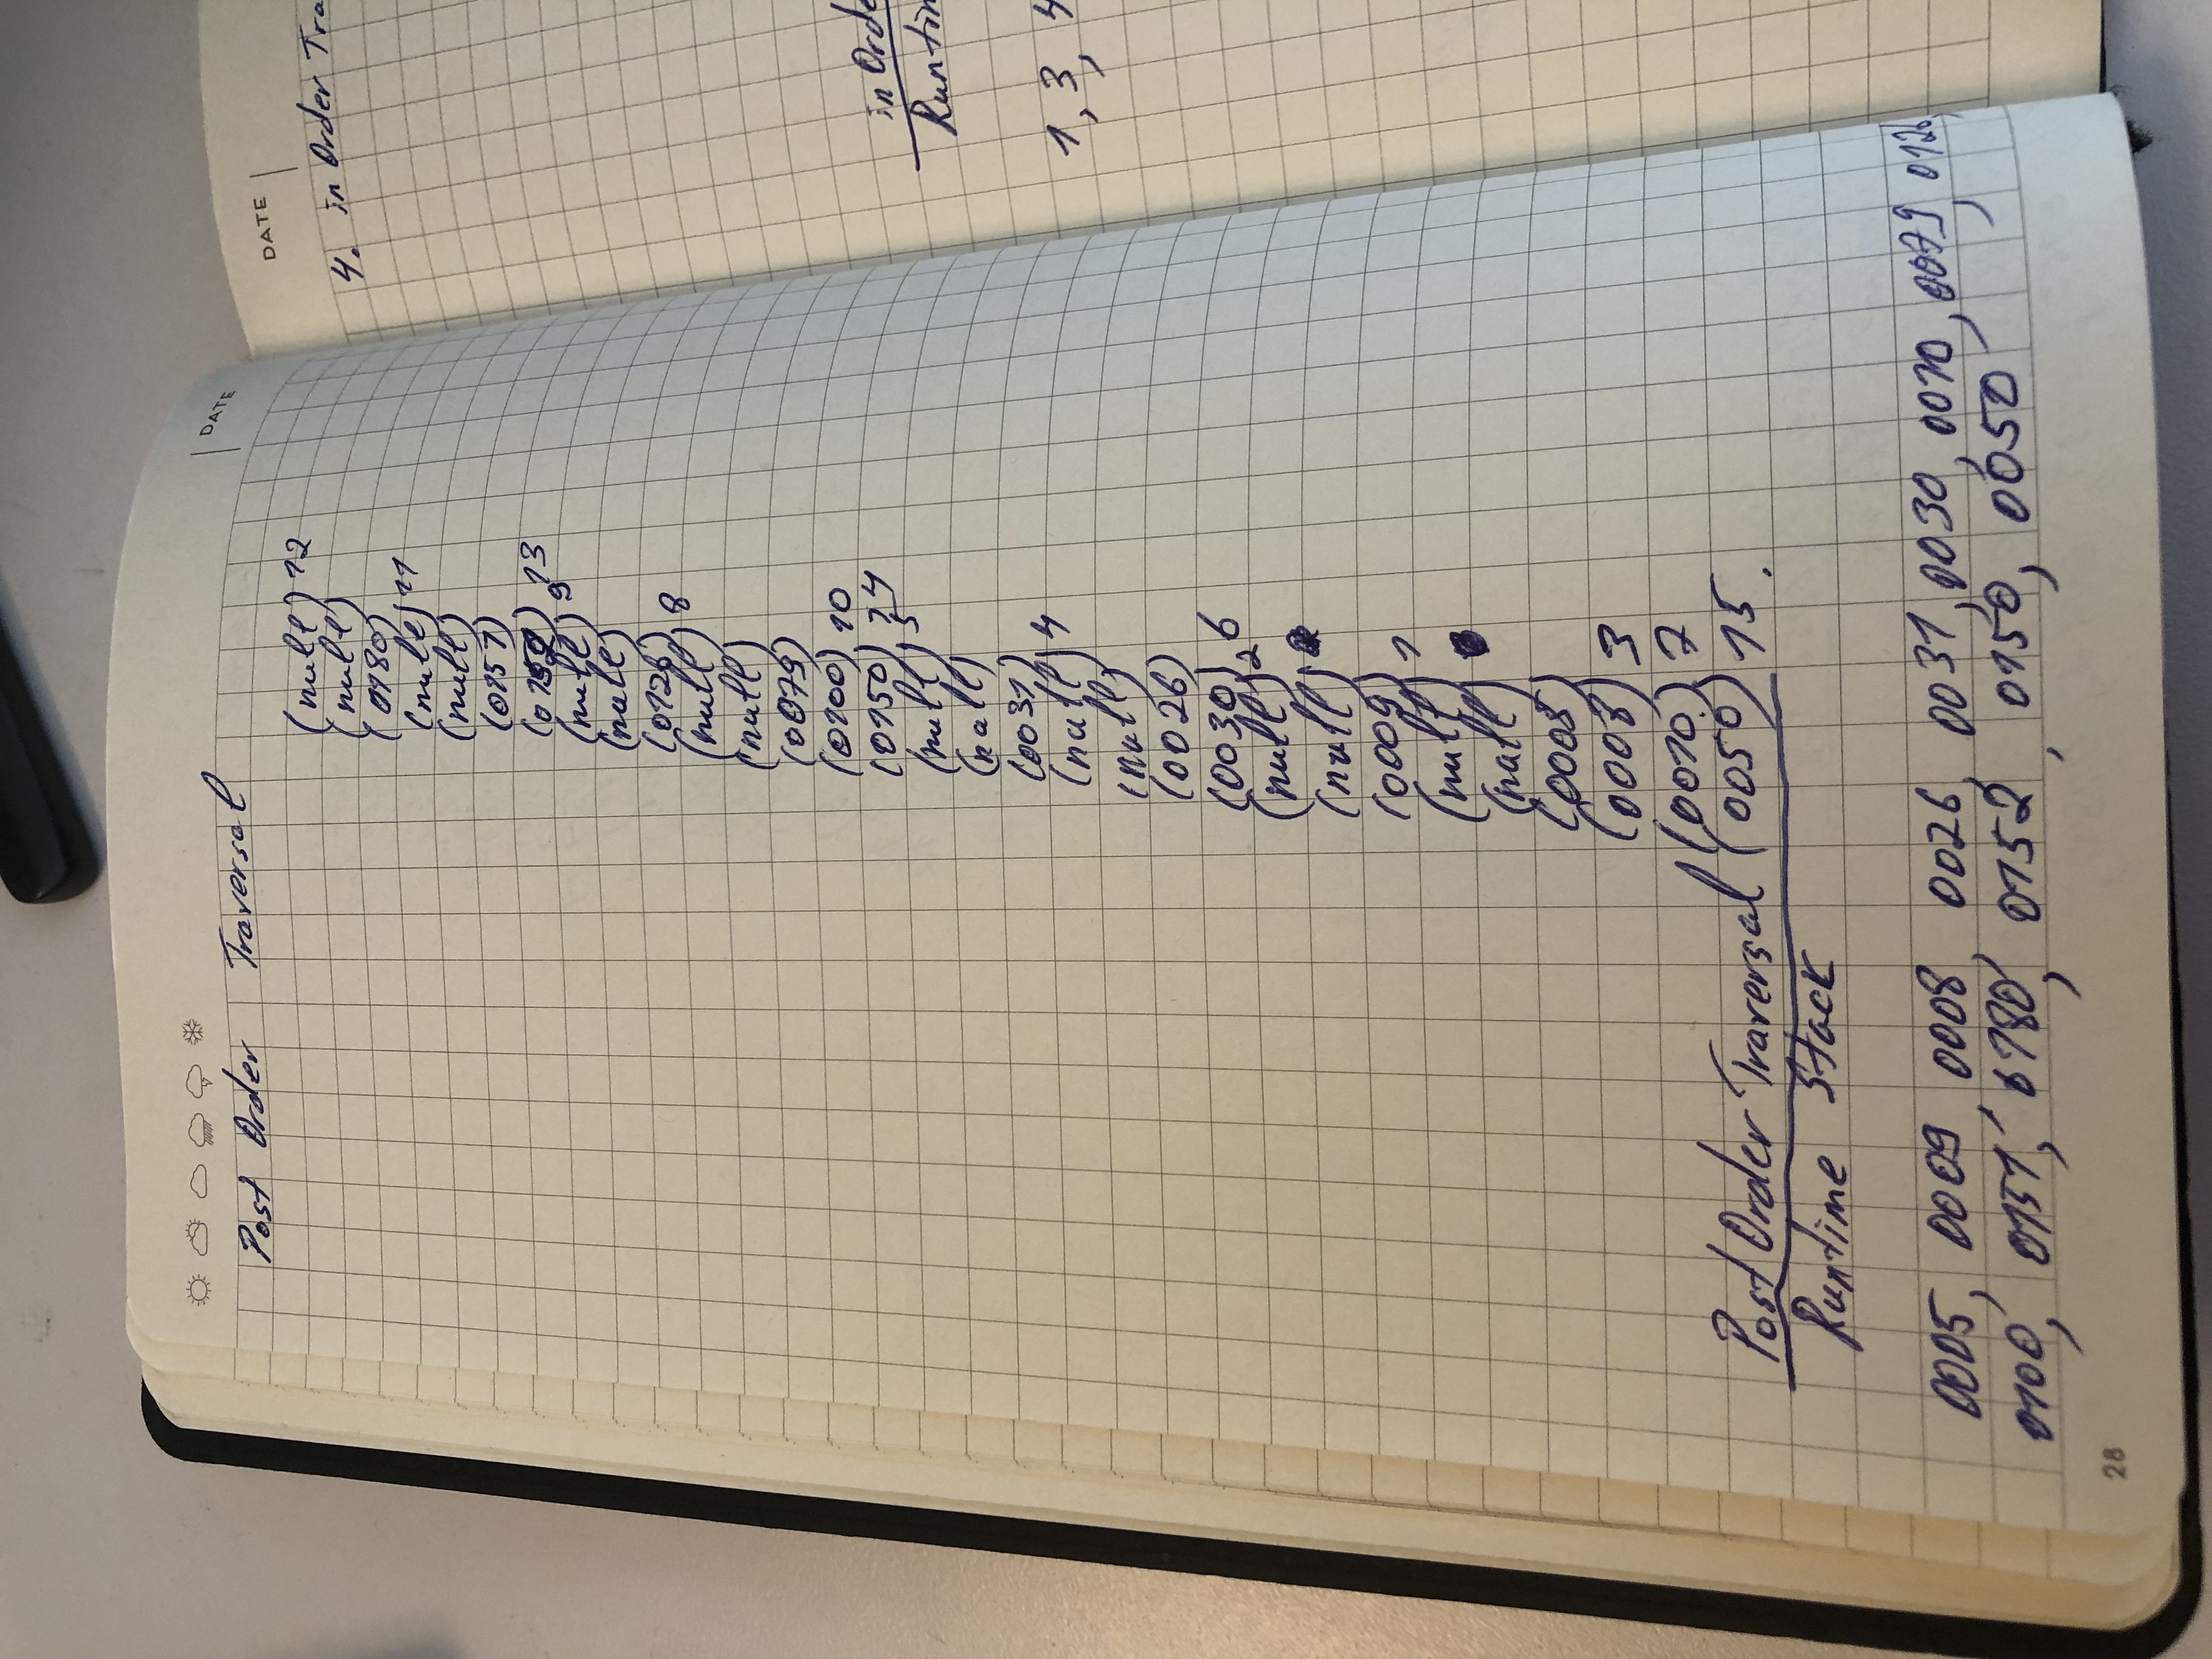 DATE
Post Order Traversal
(null) 12
(null)
(0180)
(null) 11
(null)
(0151)
(0152) 13
(null) 9
(null)
(0126)
(null) 8
(null)
(0079)
(0100) 10
(0150) 14
(null) 5
(null)
(0031)
(null) 4
(null)
(0026)
(0030) 6
(null) 2
(null)
(0009)
(null) 1
(null)
(0005)
(0008) 3
(0010) 7
Post Order Traversal (0050) 15.
Runtime Stack
0005, 0009, 0008, 0026, 0031, 0030, 0010, 0079, 0126,
0100, 0151, 0180, 0152, 0150, 0050
28
DATE
4. in Order Tra
in Orde
Runtim
1, 3, 4